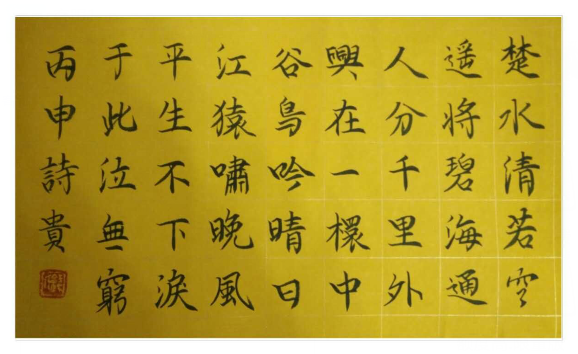 楚水清若空
遥将碧海通
人分千里外
興在一中
谷鳥吟晴日
江猿嘯晚風
平生不下淚
于此泣無窮
丙申詩貴